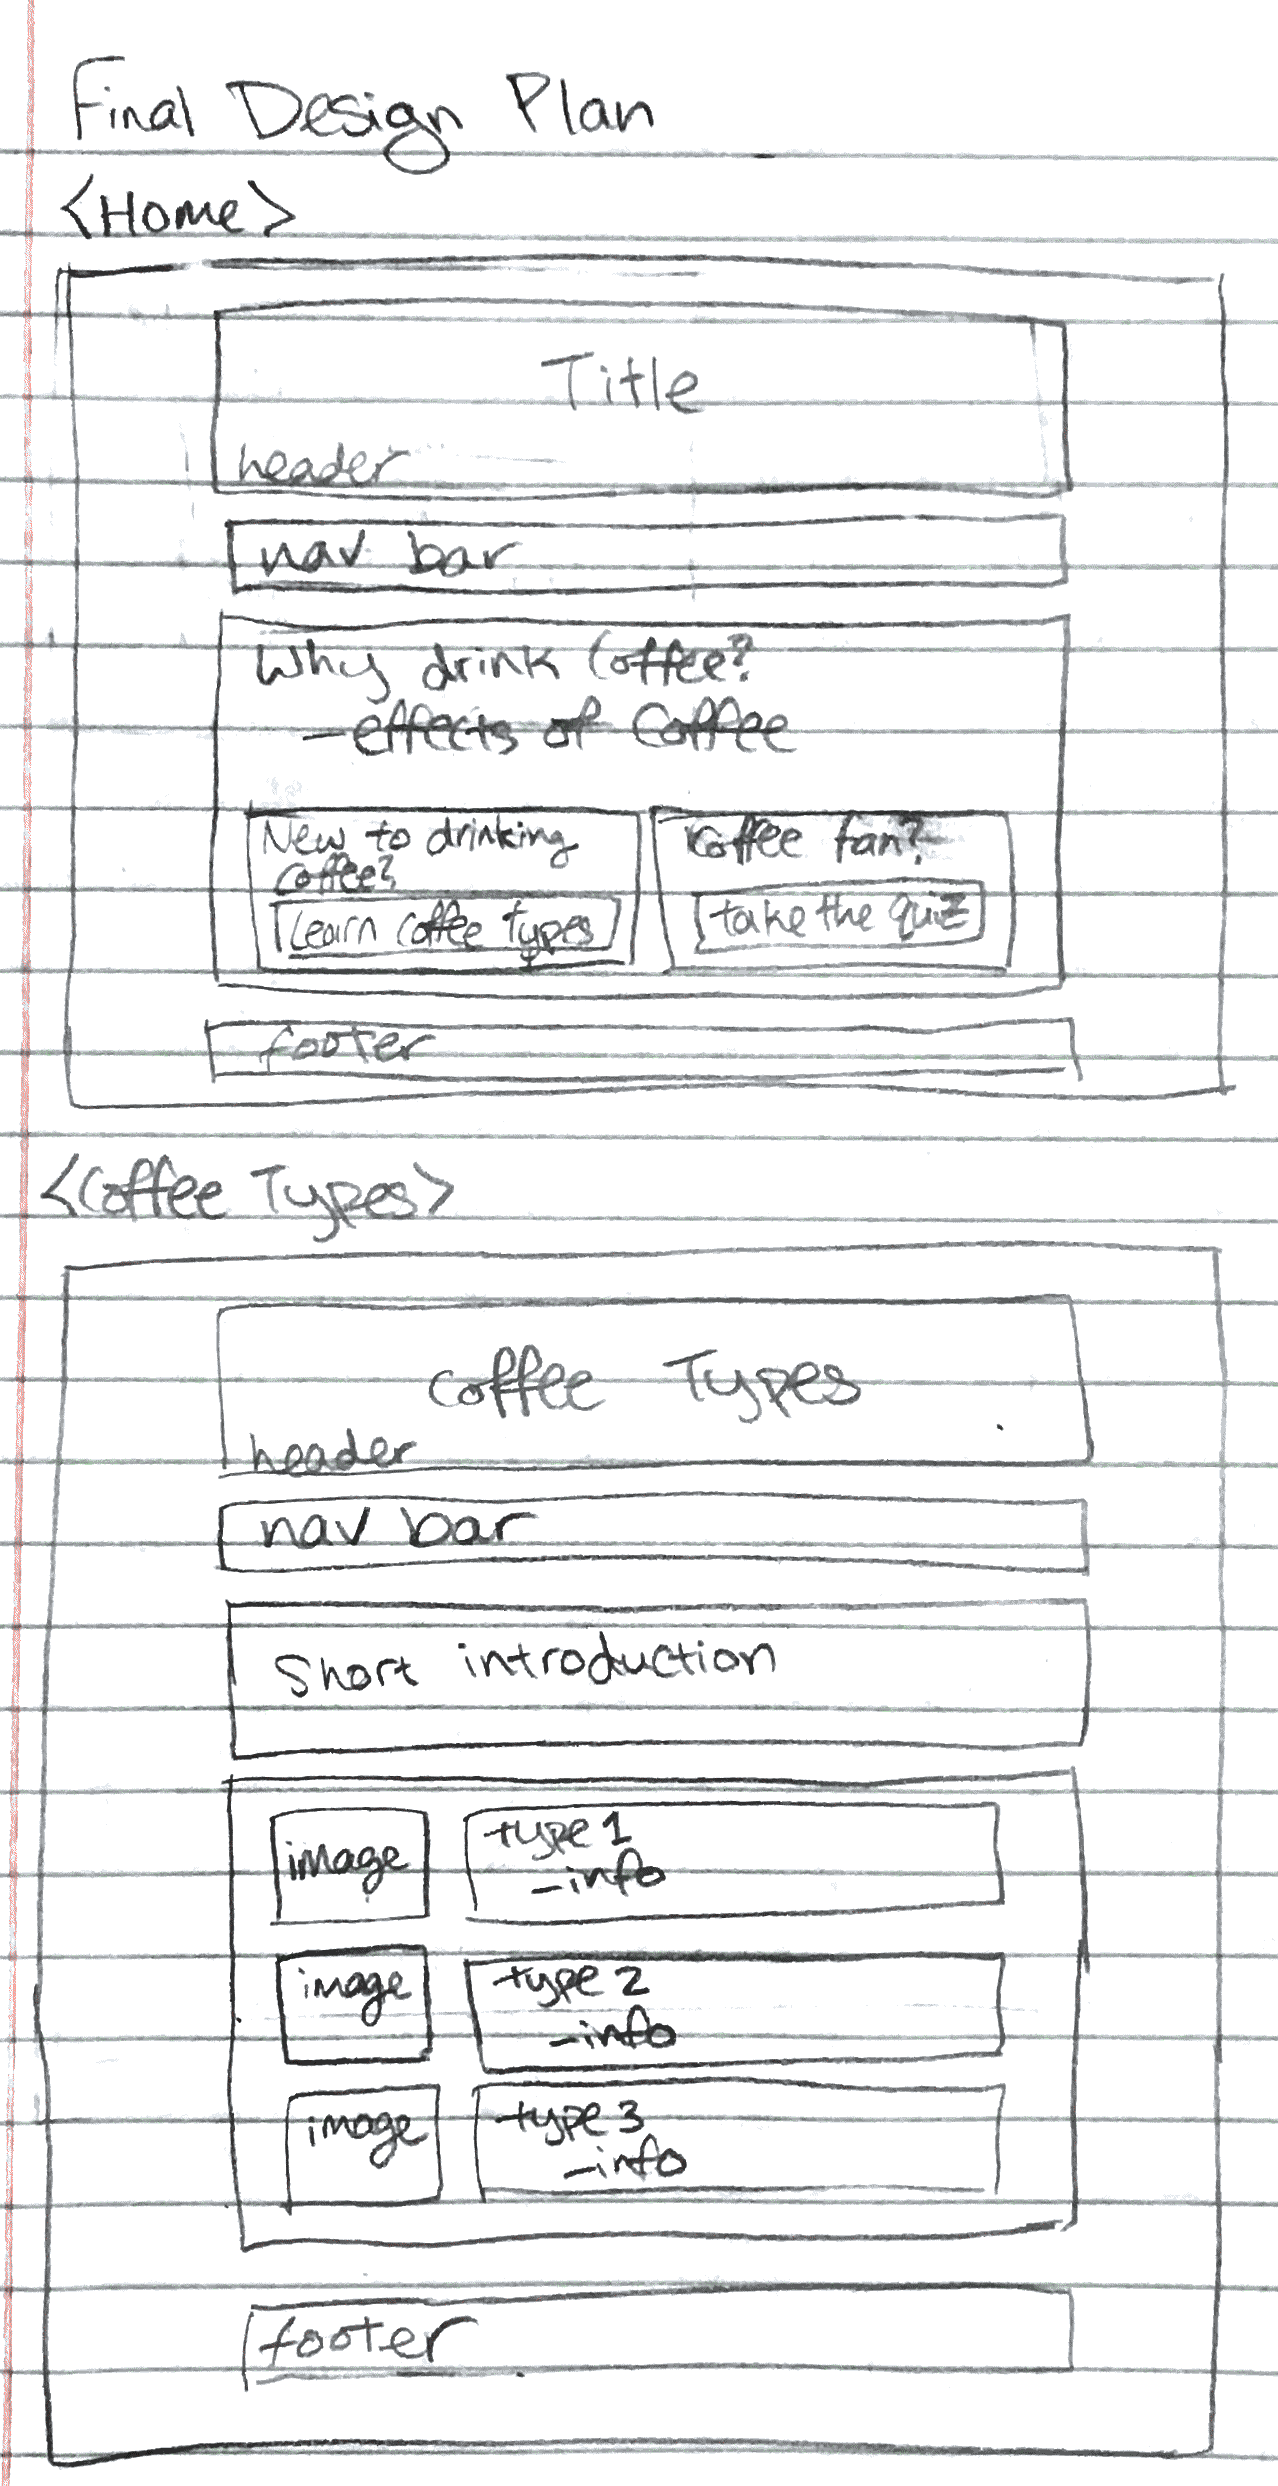 Final Design Plan
<Home>
Title
header
nav bar
Why drink Coffee?
- effects of Coffee
New to drinking
coffee?
Learn coffee types
Coffee fan?
take the quiz
footer
<Coffee Types>
Coffee Types
header
nav bar
Short introduction
image
type 1
- info
image
type 2
- info
image
type 3
- info
footer